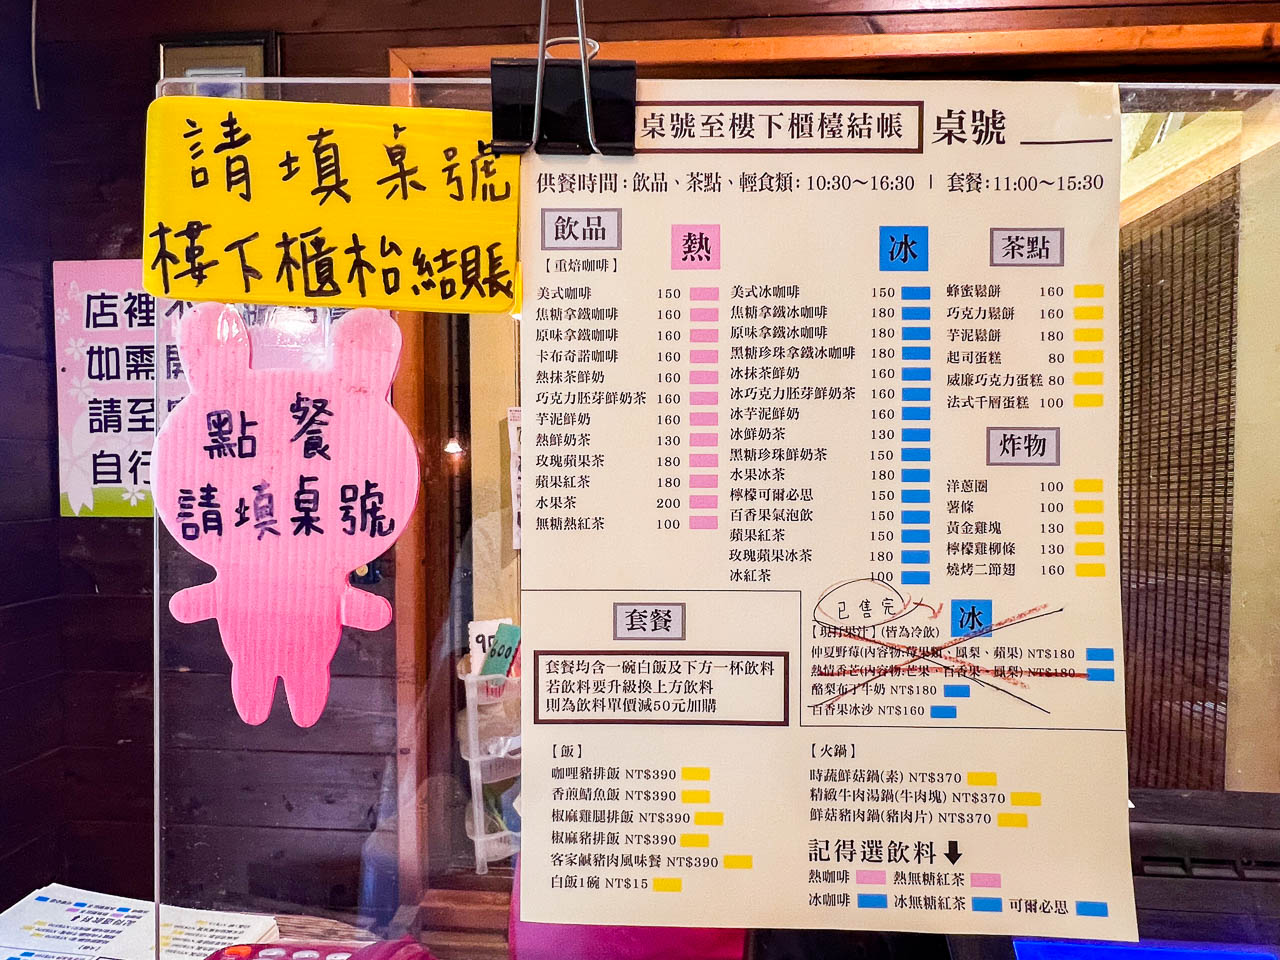 請填桌號
樓下櫃枱結賬
店裡
如需
請至
自行
點餐
請填桌號
桌號至樓下櫃檯結帳 桌號
供餐時間:飲品、茶點、輕食類: 10:30～16:30 | 套餐:11:00～15:30
飲品 熱
【重焙咖啡】
美式咖啡 150
焦糖拿鐵咖啡 160
原味拿鐵咖啡 160
卡布奇諾咖啡 160
熱抹茶鮮奶 160
巧克力胚芽鮮奶茶 160
芋泥鮮奶 160
熱鮮奶茶 130
玫瑰蘋果茶 180
蘋果紅茶 180
水果茶 200
無糖熱紅茶 100
冰
美式冰咖啡 150
焦糖拿鐵冰咖啡 180
原味拿鐵冰咖啡 180
黑糖珍珠拿鐵冰咖啡 180
冰抹茶鮮奶 160
冰巧克力胚芽鮮奶茶 160
冰芋泥鮮奶 160
冰鮮奶茶 130
黑糖珍珠鮮奶茶 150
水果冰茶 180
檸檬可爾必思 150
百香果氣泡飲 150
蘋果紅茶 150
玫瑰蘋果冰茶 180
冰紅茶 100
茶點
蜂蜜鬆餅 160
巧克力鬆餅 160
芋泥鬆餅 180
起司蛋糕 80
威廉巧克力蛋糕 80
法式千層蛋糕 100
炸物
洋蔥圈 100
薯條 100
黃金雞塊 130
檸檬雞柳條 130
燒烤二節翅 160
套餐
套餐均含一碗白飯及下方一杯飲料
若飲料要升級換上方飲料
則為飲料單價減50元加購
已售完
冰
【現打果汁】(皆為冷飲)
仲夏野莓(內容物:莓果類、鳳梨、蘋果) NT$180
熱情香芒(內容物:芒果、百香果、鳳梨) NT$180
酪梨布丁牛奶 NT$180
百香果冰沙 NT$160
【飯】
咖哩豬排飯 NT$390
香煎鯖魚飯 NT$390
椒麻雞腿排飯 NT$390
椒麻豬排飯 NT$390
客家鹹豬肉風味餐 NT$390
白飯1碗 NT$15
【火鍋】
時蔬鮮菇鍋(素) NT$370
精緻牛肉湯鍋(牛肉塊) NT$370
鮮菇豬肉鍋(豬肉片) NT$370
記得選飲料
熱咖啡 熱無糖紅茶
冰咖啡 冰無糖紅茶 可爾必思